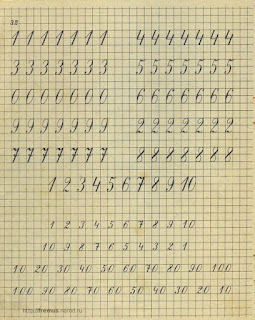 38
1 1 1 1 1 1 1 4 4 4 4 4 4 4
3 3 3 3 3 3 3 5 5 5 5 5 5 5
0 0 0 0 0 0 0 6 6 6 6 6 6 6
9 9 9 9 9 9 9 2 2 2 2 2 2 2
7 7 7 7 7 7 7 8 8 8 8 8 8 8
1 2 3 4 5 6 7 8 9 10
1 2 3 4 5 6 7 8 9 10
10 9 8 7 6 5 4 3 2 1
10 20 30 40 50 60 70 80 90 100
100 90 80 70 60 50 40 30 20 10